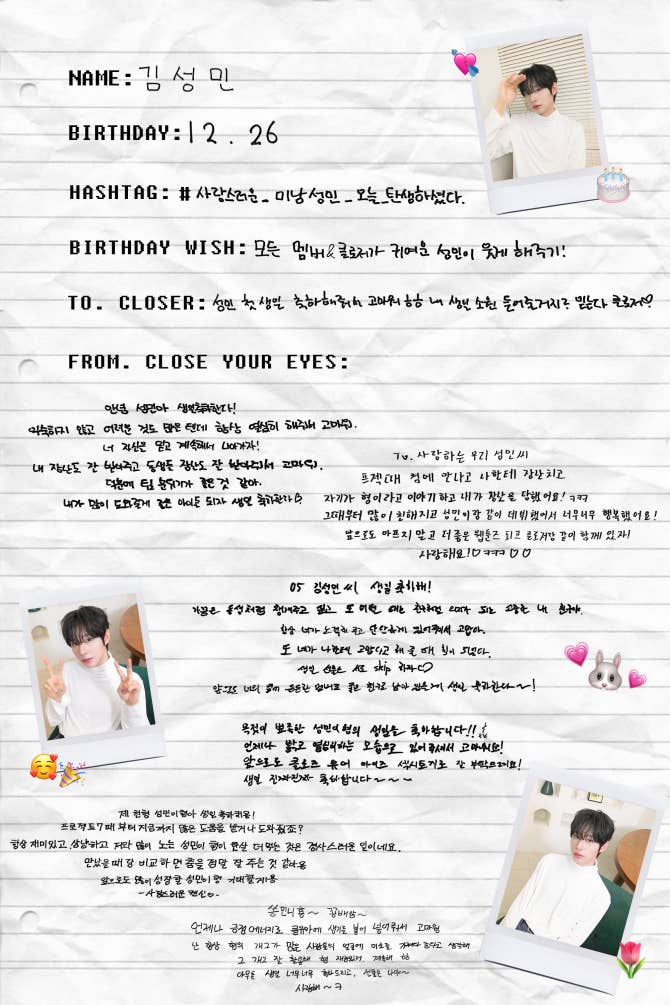 NAME: 김성민
BIRTHDAY: 12.26
HASHTAG: #사랑스러운_미남성민_오늘_탄생하셨다.
BIRTHDAY WISH: 모든 멤버&클로저가 귀여운 성민이 웃게 해주기!
TO. CLOSER: 성민 첫 생일 축하해줘서 고마워 ㅎㅎ 내 생일 소원 들어줄거지? 믿는다 클로저♡
FROM. CLOSE YOUR EYES:
안녕 성민아 생일축하한다!
익숙하지 않고 어려운 것도 많을 텐데 항상 열심히 해줘서 고마워.
너 자신을 믿고 계속해서 나아가자!
내 장난도 잘 받아주고 동생들 장난도 잘 받아줘서 고마워.
덕분에 팀 분위기가 좋은 것 같아.
내가 많이 도와줄게 좋은 아이돌 되자 생일 축하한다☆
To. 사랑하는 우리 성민씨
프젝때 첨에 만나고 나한테 장난치고
자기가 형이라고 이야기하고 내가 장난을 당했어요! ㅋㅋㅋ
그때부터 많이 친해지고 성민이랑 같이 데뷔했어서 너무너무 행복했어요!
앞으로도 아프지 말고 더 좋은 클로저랑 같이 함께 있자!
사랑해요!♡ㅋㅋㅋ♡♡
05 김성민 씨 생일 축하해!
가끔은 동생처럼 챙겨주고 싶고 또 어떤 때는 되는 고마운 내 친구야.
항상 네가 노력하고 단단하게 있어줘서 고맙다.
또 네가 나한테 고맙다고 해 줄 때 힘이 되었다.
생일 선물은 서로 skip 하자♡
앞으로도 너의 옆에 든든한 멤버로 좋은 친구로 남아 있을게 생일 축하한다~!
목젖이 뾰족한 성민이형의 생일을 축하합니다!!
언제나 밝고 열심히하는 모습으로 있어주셔서 고마워요!
앞으로도 클로즈 유어 아이즈 잘 부탁드려요!
생일 진짜진짜 축하합니다~~~
제 친형 성민이형아 생일 축하해용!
프로젝트7 때 부터 지금까지 많은 도움을 받거나 도와줬죠?
항상 재미있고 상냥하고 저랑 많이 노는 성민이 형이 한살 더 먹는 것은 경사스러운 일이네요.
만났을 때랑 비교하면 춤을 정말 잘 추는 것 같아용
앞으로도 많이 성장할 성민이 형 기대할게용
-사랑스러운 켄신☺-
쏭민니횽~ 낌빼밤~
언제나 긍정에너지로 클유아에 생기를 불어 넣어줘서 고마워
난 항상 형의 개그가 많은 사람들의 얼굴에 미소를 가져다 준다고 생각해
그 개그 잘 형 계속해 ㅎㅎ
아무튼 생일 너무너무 축하드리고, 선물은 나야~
사랑해~ㅋ